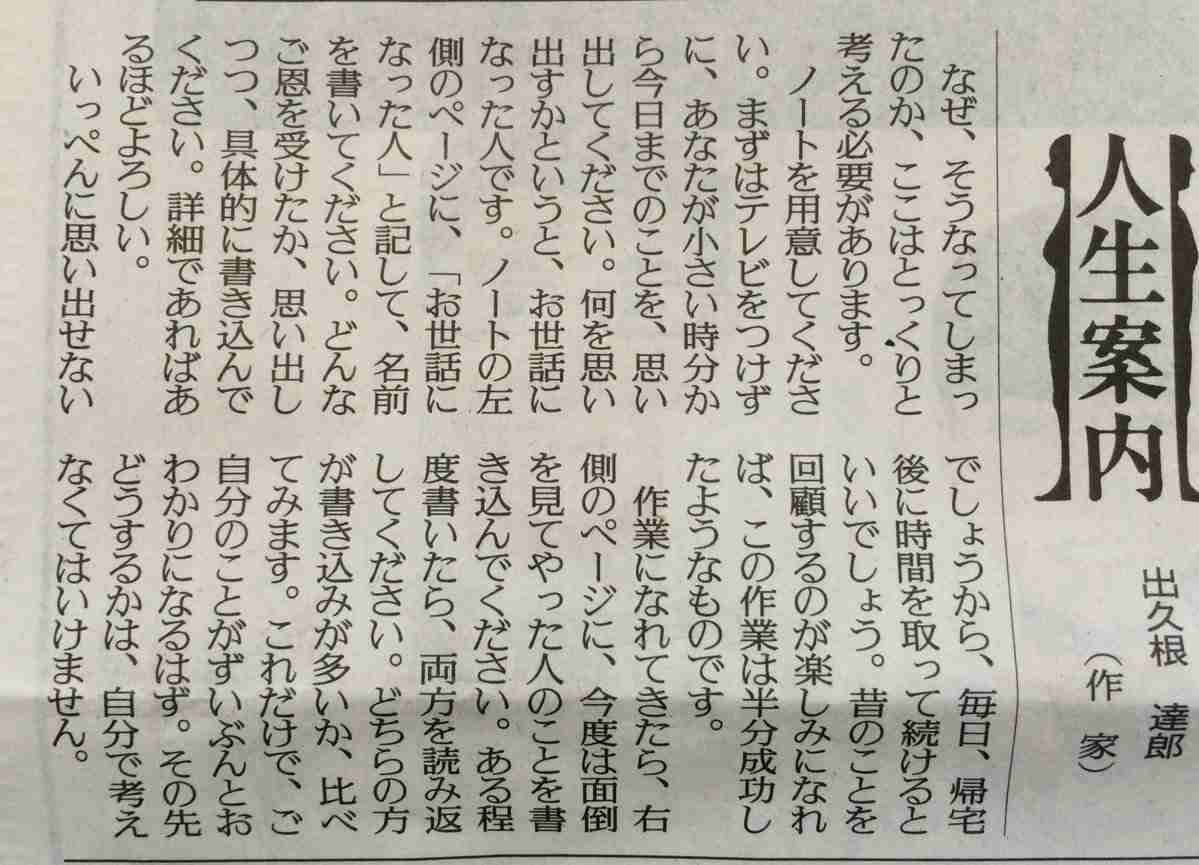 人生案内
出久根 達郎
(作 家)
なぜ、そうなってしまっ
たのか、ここはとっくりと
考える必要があります。
ノートを用意してくださ
い。まずはテレビをつけず
に、あなたが小さい時分か
ら今日までのことを、思い
出してください。何を思い
出すかというと、お世話に
なった人です。ノートの左
側のページに、「お世話に
なった人」と記して、名前
を書いてください。どんな
ご恩を受けたか、思い出し
つつ、具体的に書き込んで
ください。詳細であればあ
るほどよろしい。
いっぺんに思い出せない
でしょうから、毎日、帰宅
後に時間を取って続けると
いいでしょう。昔のことを
回顧するのが楽しみになれ
ば、この作業は半分成功し
たようなものです。
作業になれてきたら、右
側のページに、今度は面倒
を見てやった人のことを書
き込んでください。ある程
度書いたら、両方を読み返
してください。どちらの方
が書き込みが多いか、比べ
てみます。これだけで、ご
自分のことがずいぶんとお
わかりになるはず。その先
どうするかは、自分で考え
なくてはいけません。